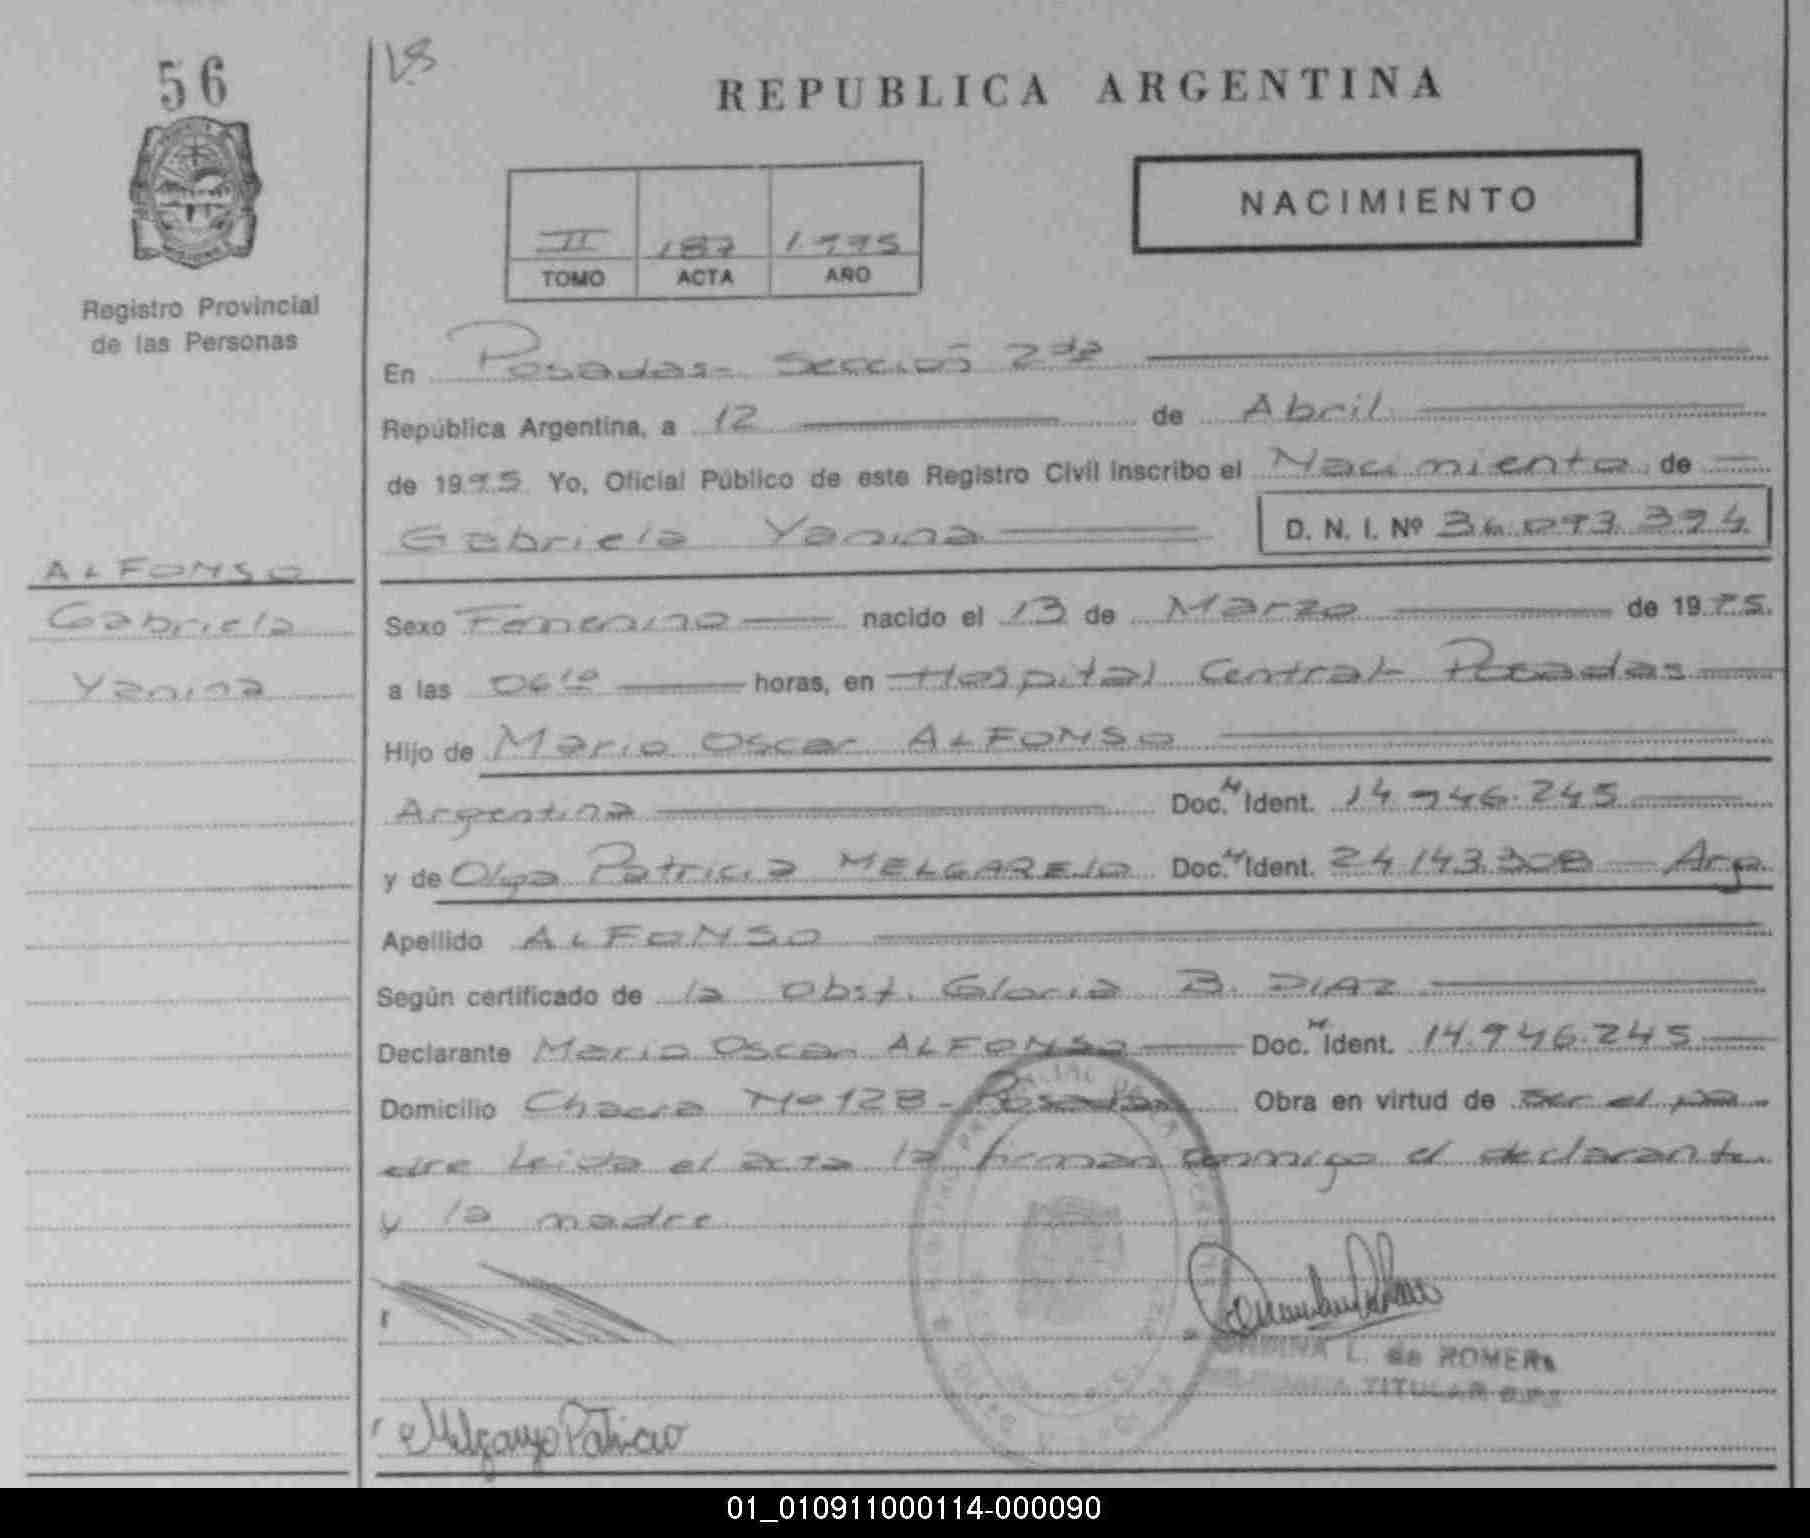 56
VS
REPUBLICA ARGENTINA
NACIMIENTO
II 187 1995
TOMO ACTA AÑO
Registro Provincial
de las Personas
En Posadas- Sección 2da
República Argentina, a 12 de Abril
de 1995 Yo, Oficial Público de este Registro Civil inscribo el Nacimiento de
Gabriela Yanina D. N. I. Nº
ALFONSO
Gabriela
Yanina
Sexo Femenino nacido el 13 de Marzo de 1995.
a las 06 10 horas, en Hospital Central- Posadas
Hijo de Mario Oscar ALFONSO
Argentina Doc. Ident. 14.946.245
y de Olga Patricia MELGAREJO Doc. Ident. 24.143.308 Arg.
Apellido ALFONSO
Según certificado de la Obst. Gloria B. DIAZ
Declarante Mario Oscar ALFONSO Doc. Ident. 14.946.245
Domicilio Chacra Nº 128- Posadas Obra en virtud de ser el pa-
dre Leida el acta la firman conmigo el declarante
y la madre
L. de ROMERO
TITULAR
Melgarejo Patricia
01_010911000114-000090